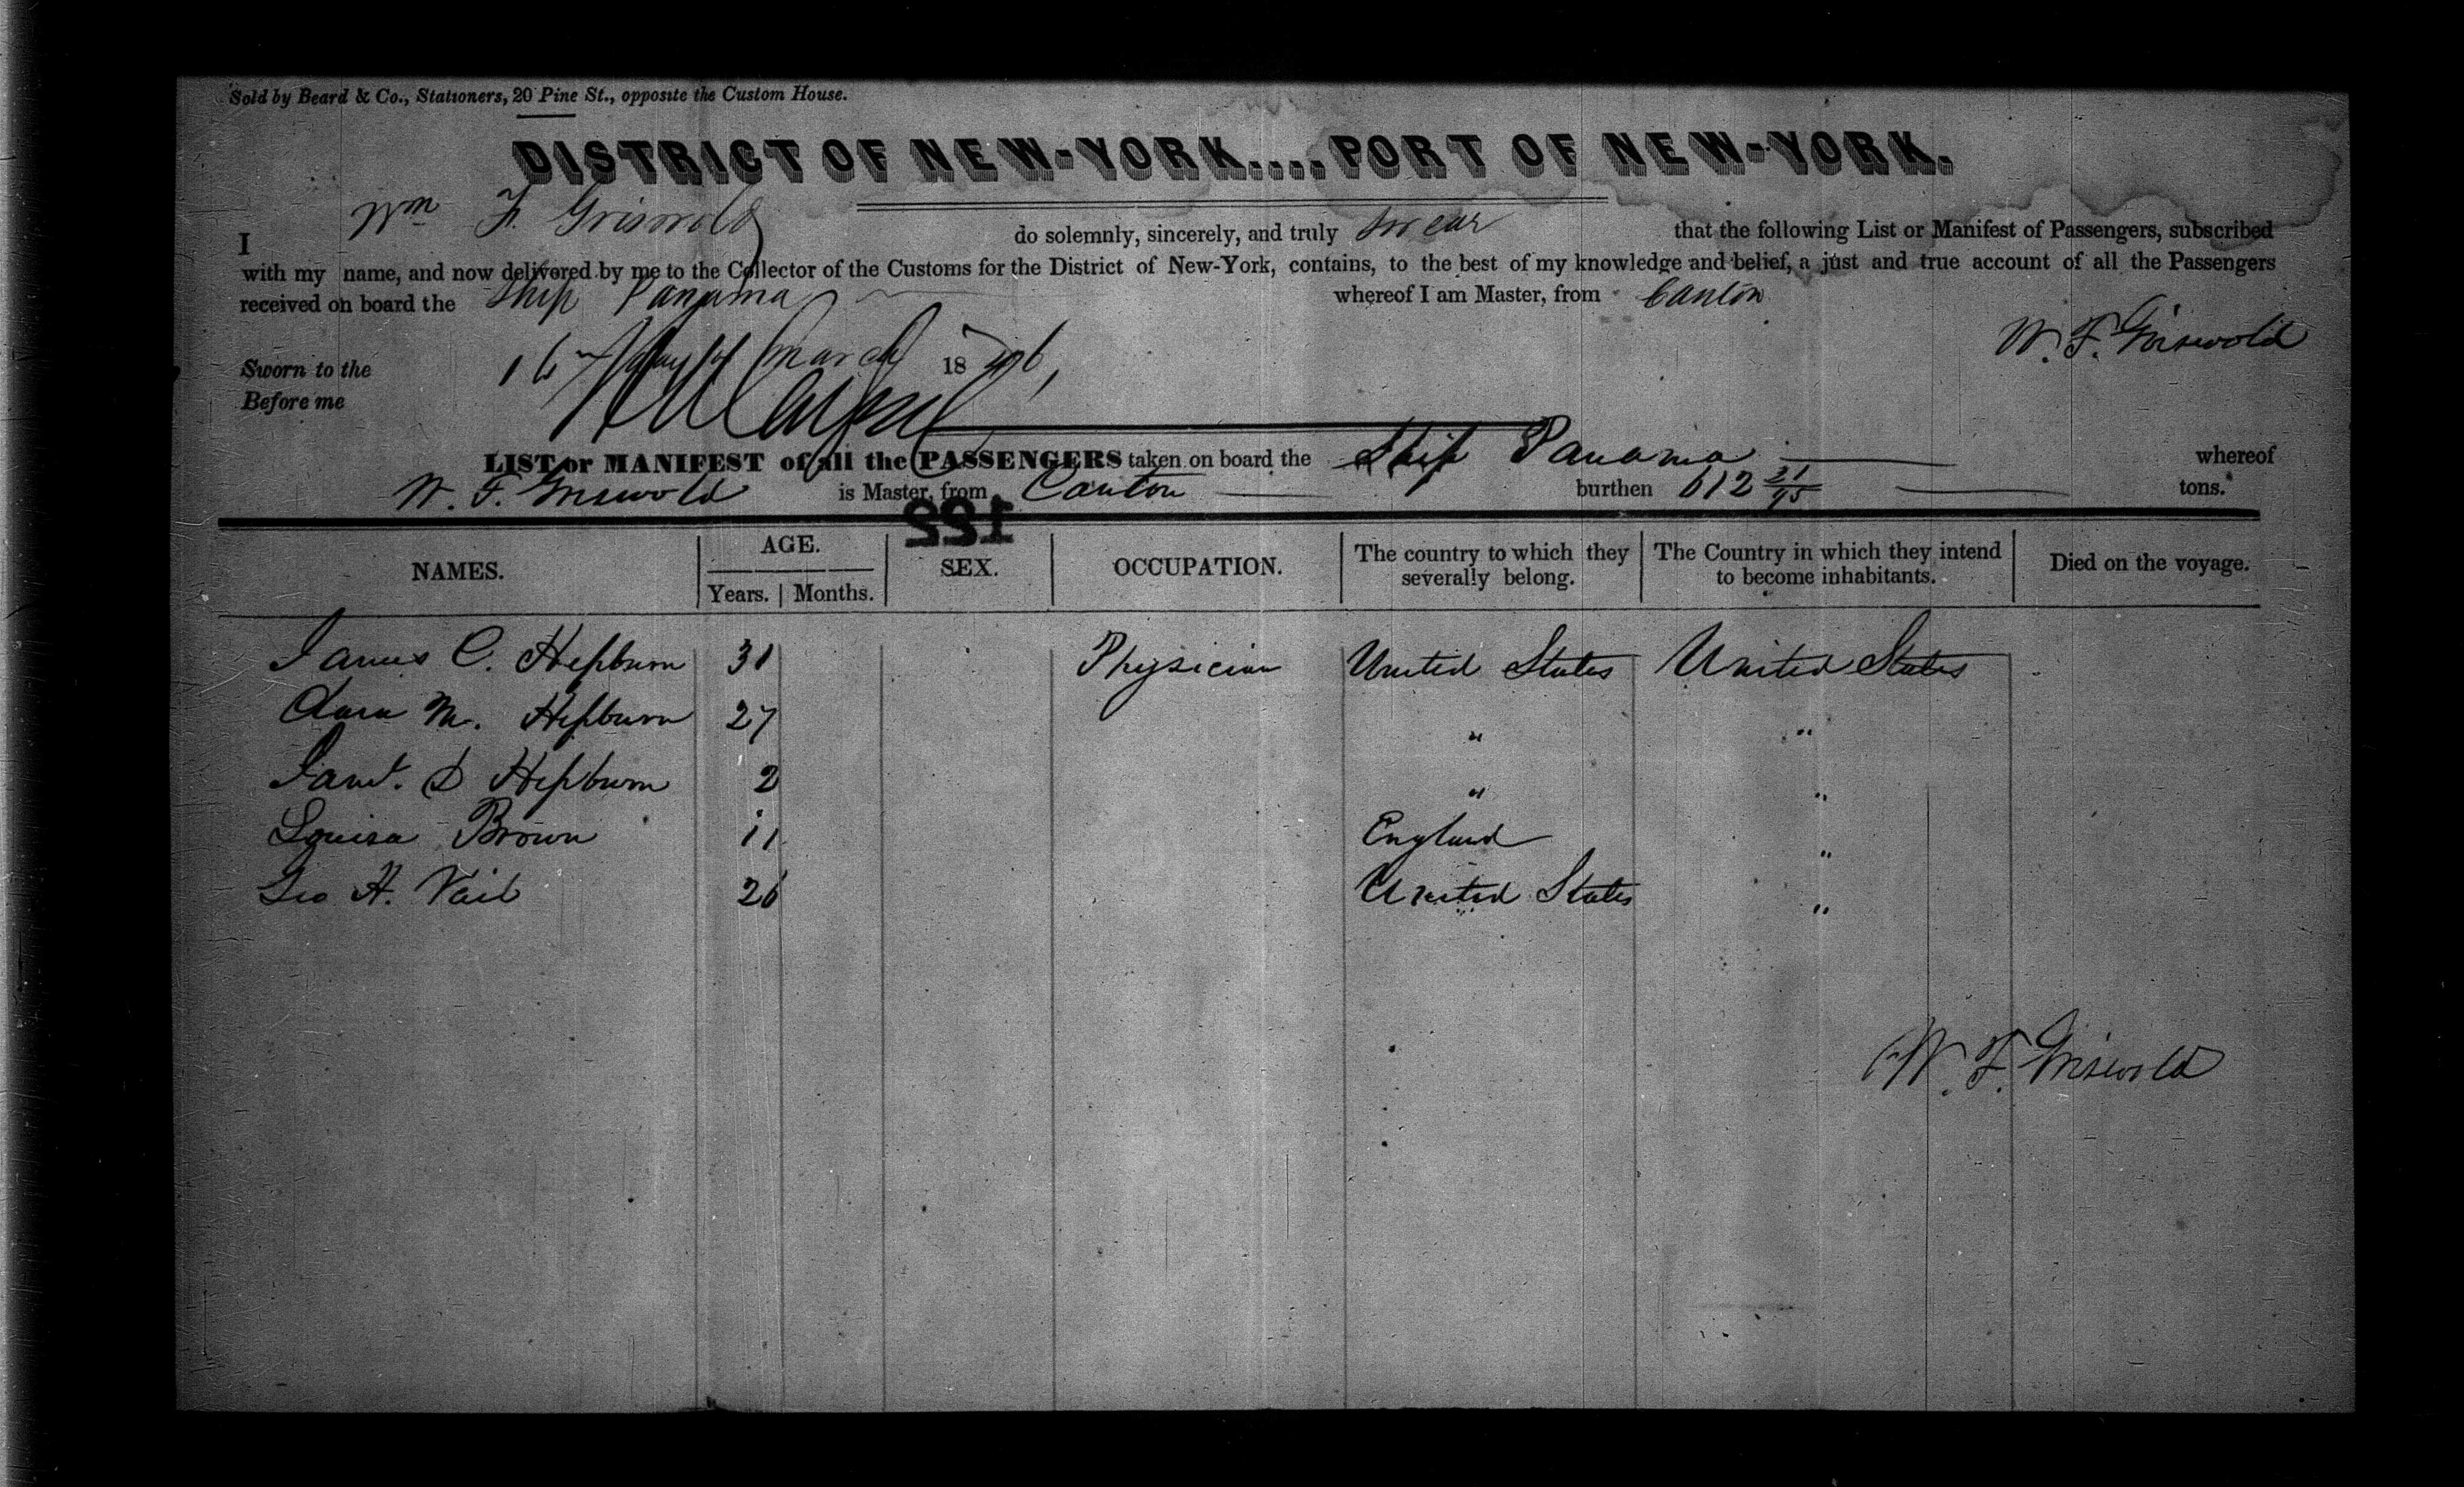 Sold by Beard & Co., Stationers, 20 Pine St., opposite the Custom House.
DISTRICT OF NEW-YORK....PORT OF NEW-YORK.
I Wm F. Griswold do solemnly, sincerely, and truly swear that the following List or Manifest of Passengers, subscribed
with my name, and now delivered by me to the Collector of the Customs for the District of New-York, contains, to the best of my knowledge and belief, a just and true account of all the Passengers
received on board the Ship Panama whereof I am Master, from Canton
W. F. Griswold
Sworn to the 16th day of March 1846,
Before me
LIST or MANIFEST of all the PASSENGERS taken on board the Ship Panama whereof
W. F. Griswold is Master, from Canton burthen 612 21/95 tons.
122
NAMES. AGE. Years. Months. SEX. OCCUPATION. The country to which they severally belong. The Country in which they intend to become inhabitants. Died on the voyage.
James C. Hepburn 31 Physician United States United States
Clara M. Hepburn 27 " "
Saml. D Hepburn 2 " "
Louisa Brown 11 England "
Geo H. Vail 26 United States "
W. F. Griswold